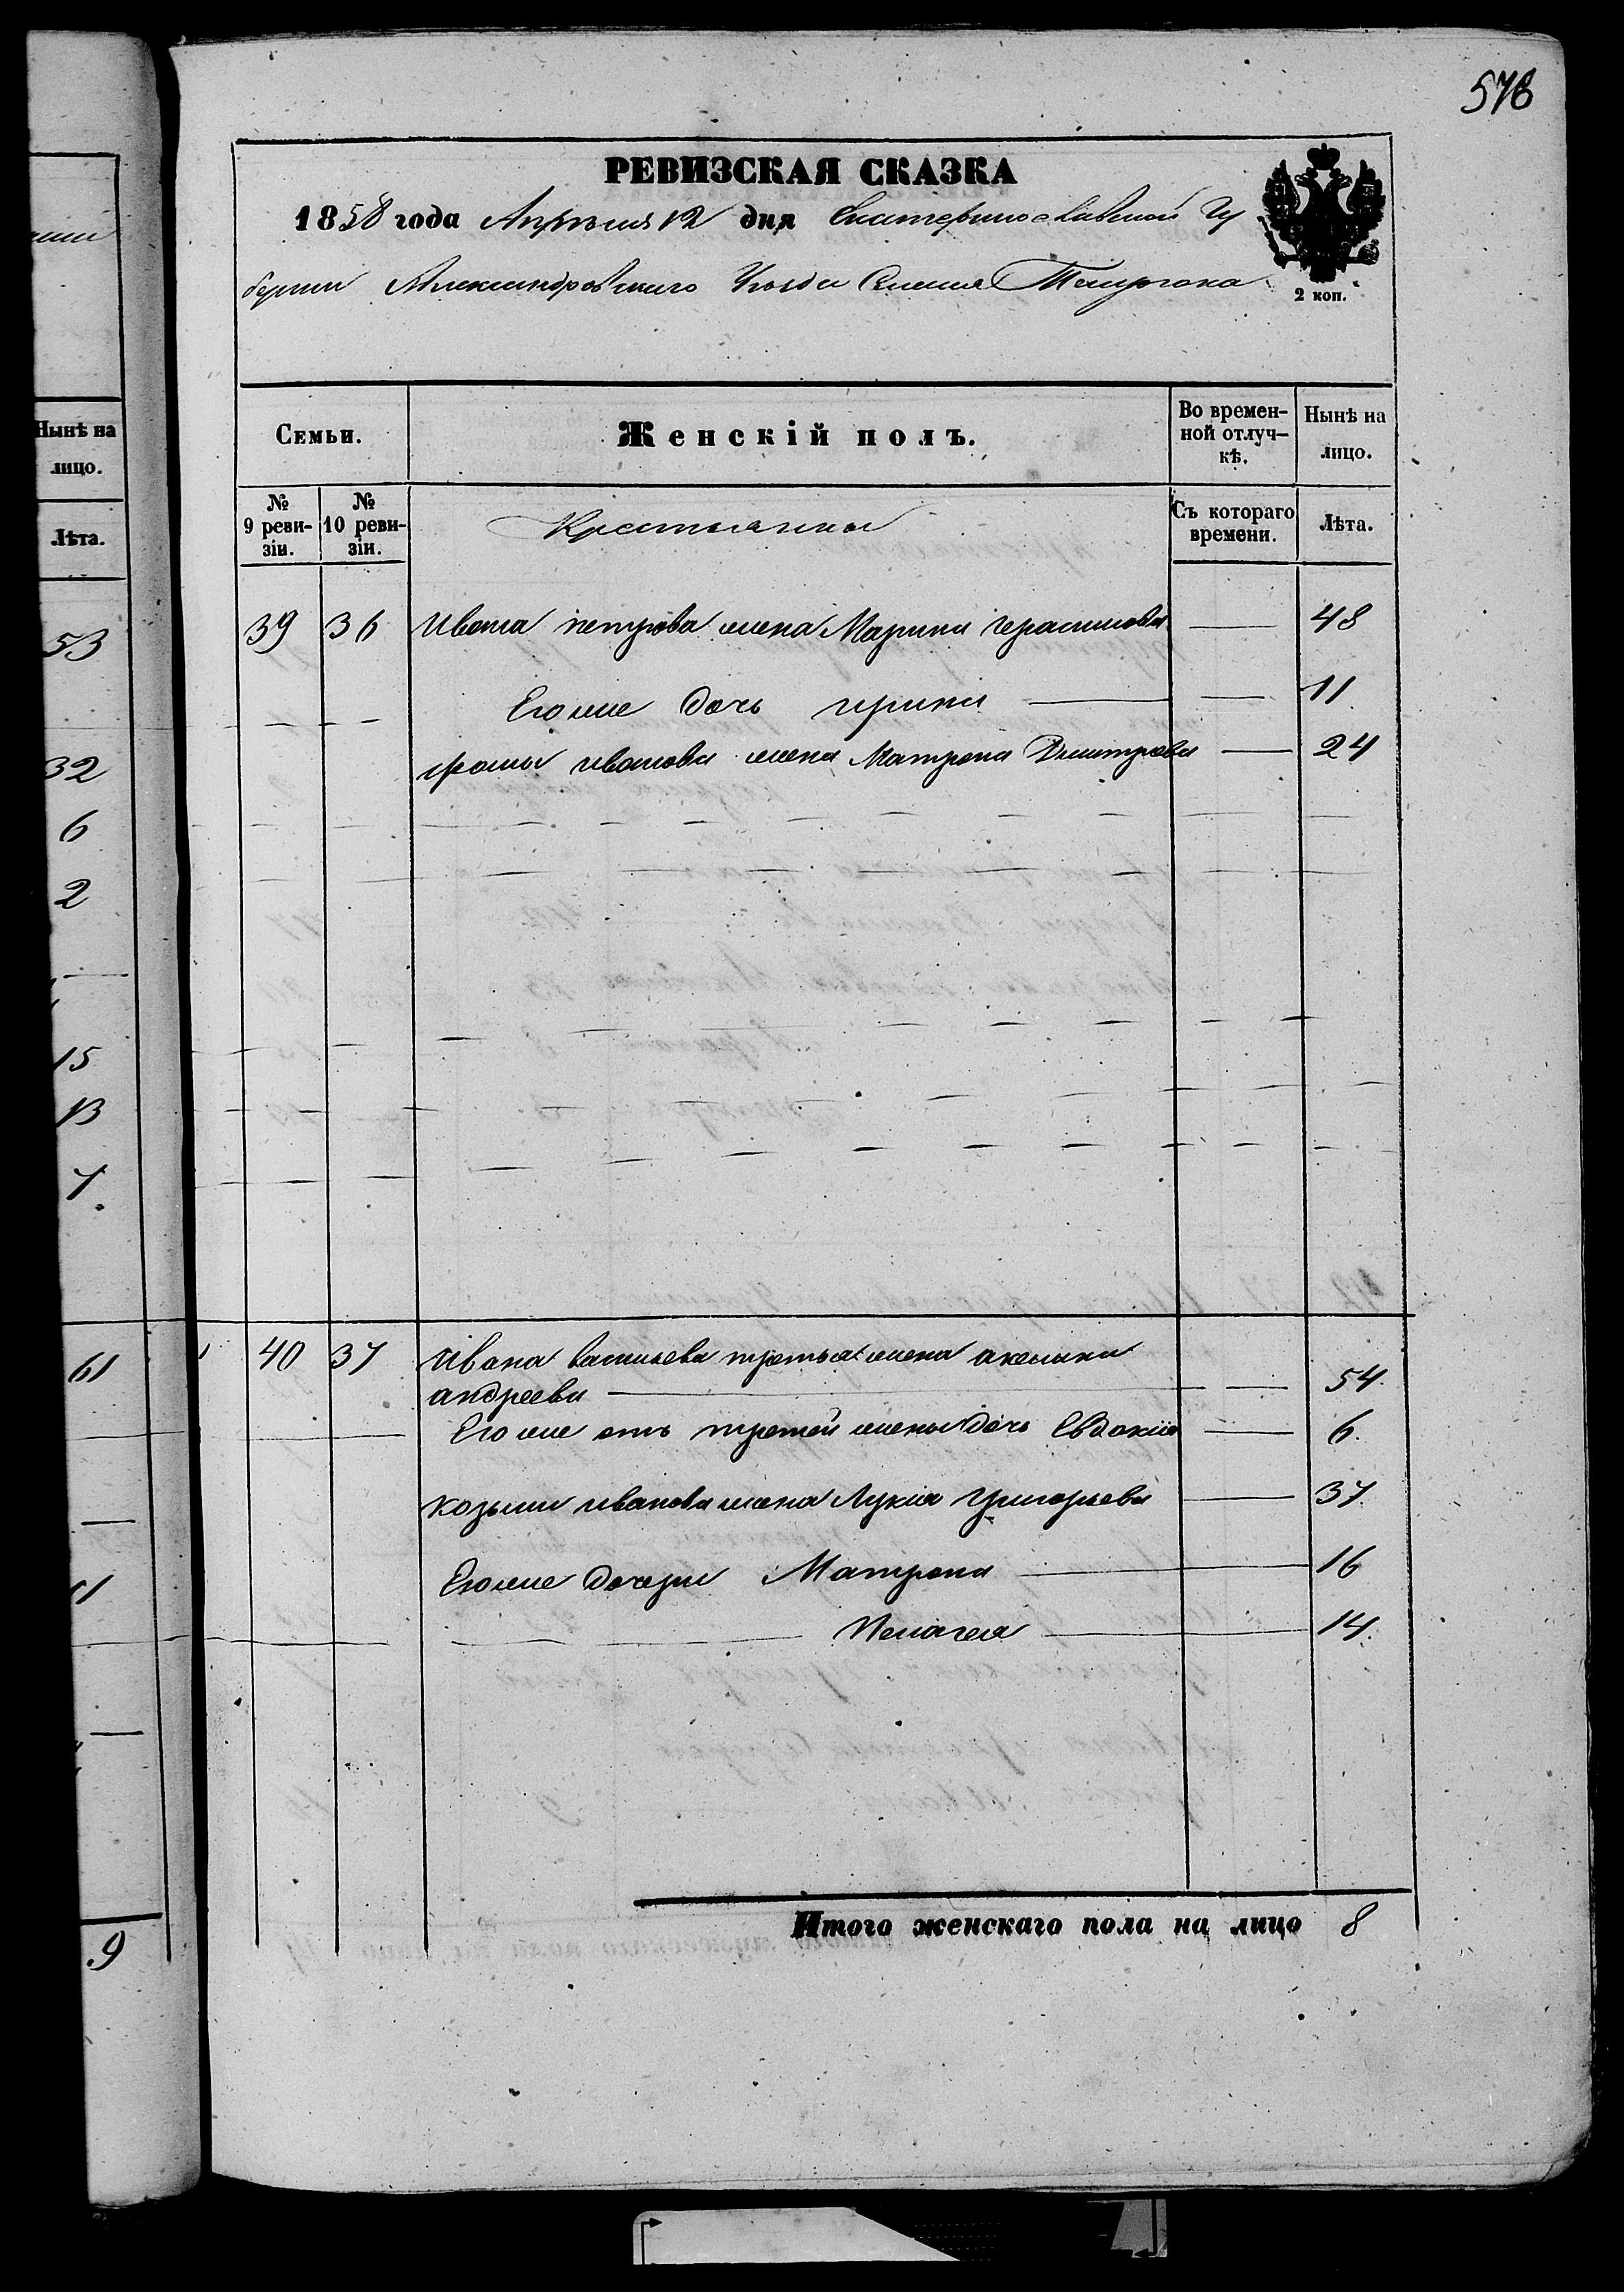 578
РЕВИЗСКАЯ СКАЗКА
1858 года Апреля 12 дня Екатеринославской Гу
бернии Александровскаго Уезда Селения
2 коп.
Семьи.
Женскій полъ.
Во времен-
ной отлуч-
кѣ.
Нынѣ на
лицо.
№
9 реви-
зіи.
№
10 реви-
зіи.
Крестьянки
Съ котораго
времени.
Лѣта.
39 36 Ивана петрова жена Марина герасимова 48
Его же дочь ирина 11
фомы иванова жена Матрона Дмитрева 24
40 37 Ивана васильева третья жена акелина
андреева 54.
Его же отъ третей жены дочь Евдокия 6.
козьмы иванова жена Лукия григорьева 37.
Его же дочери Матрона 16
Пелагея 14.
Итого женскаго пола на лицо 8
Нынѣ на
лицо.
Лѣта.
53
32
6
2
15
13
7.
61
9